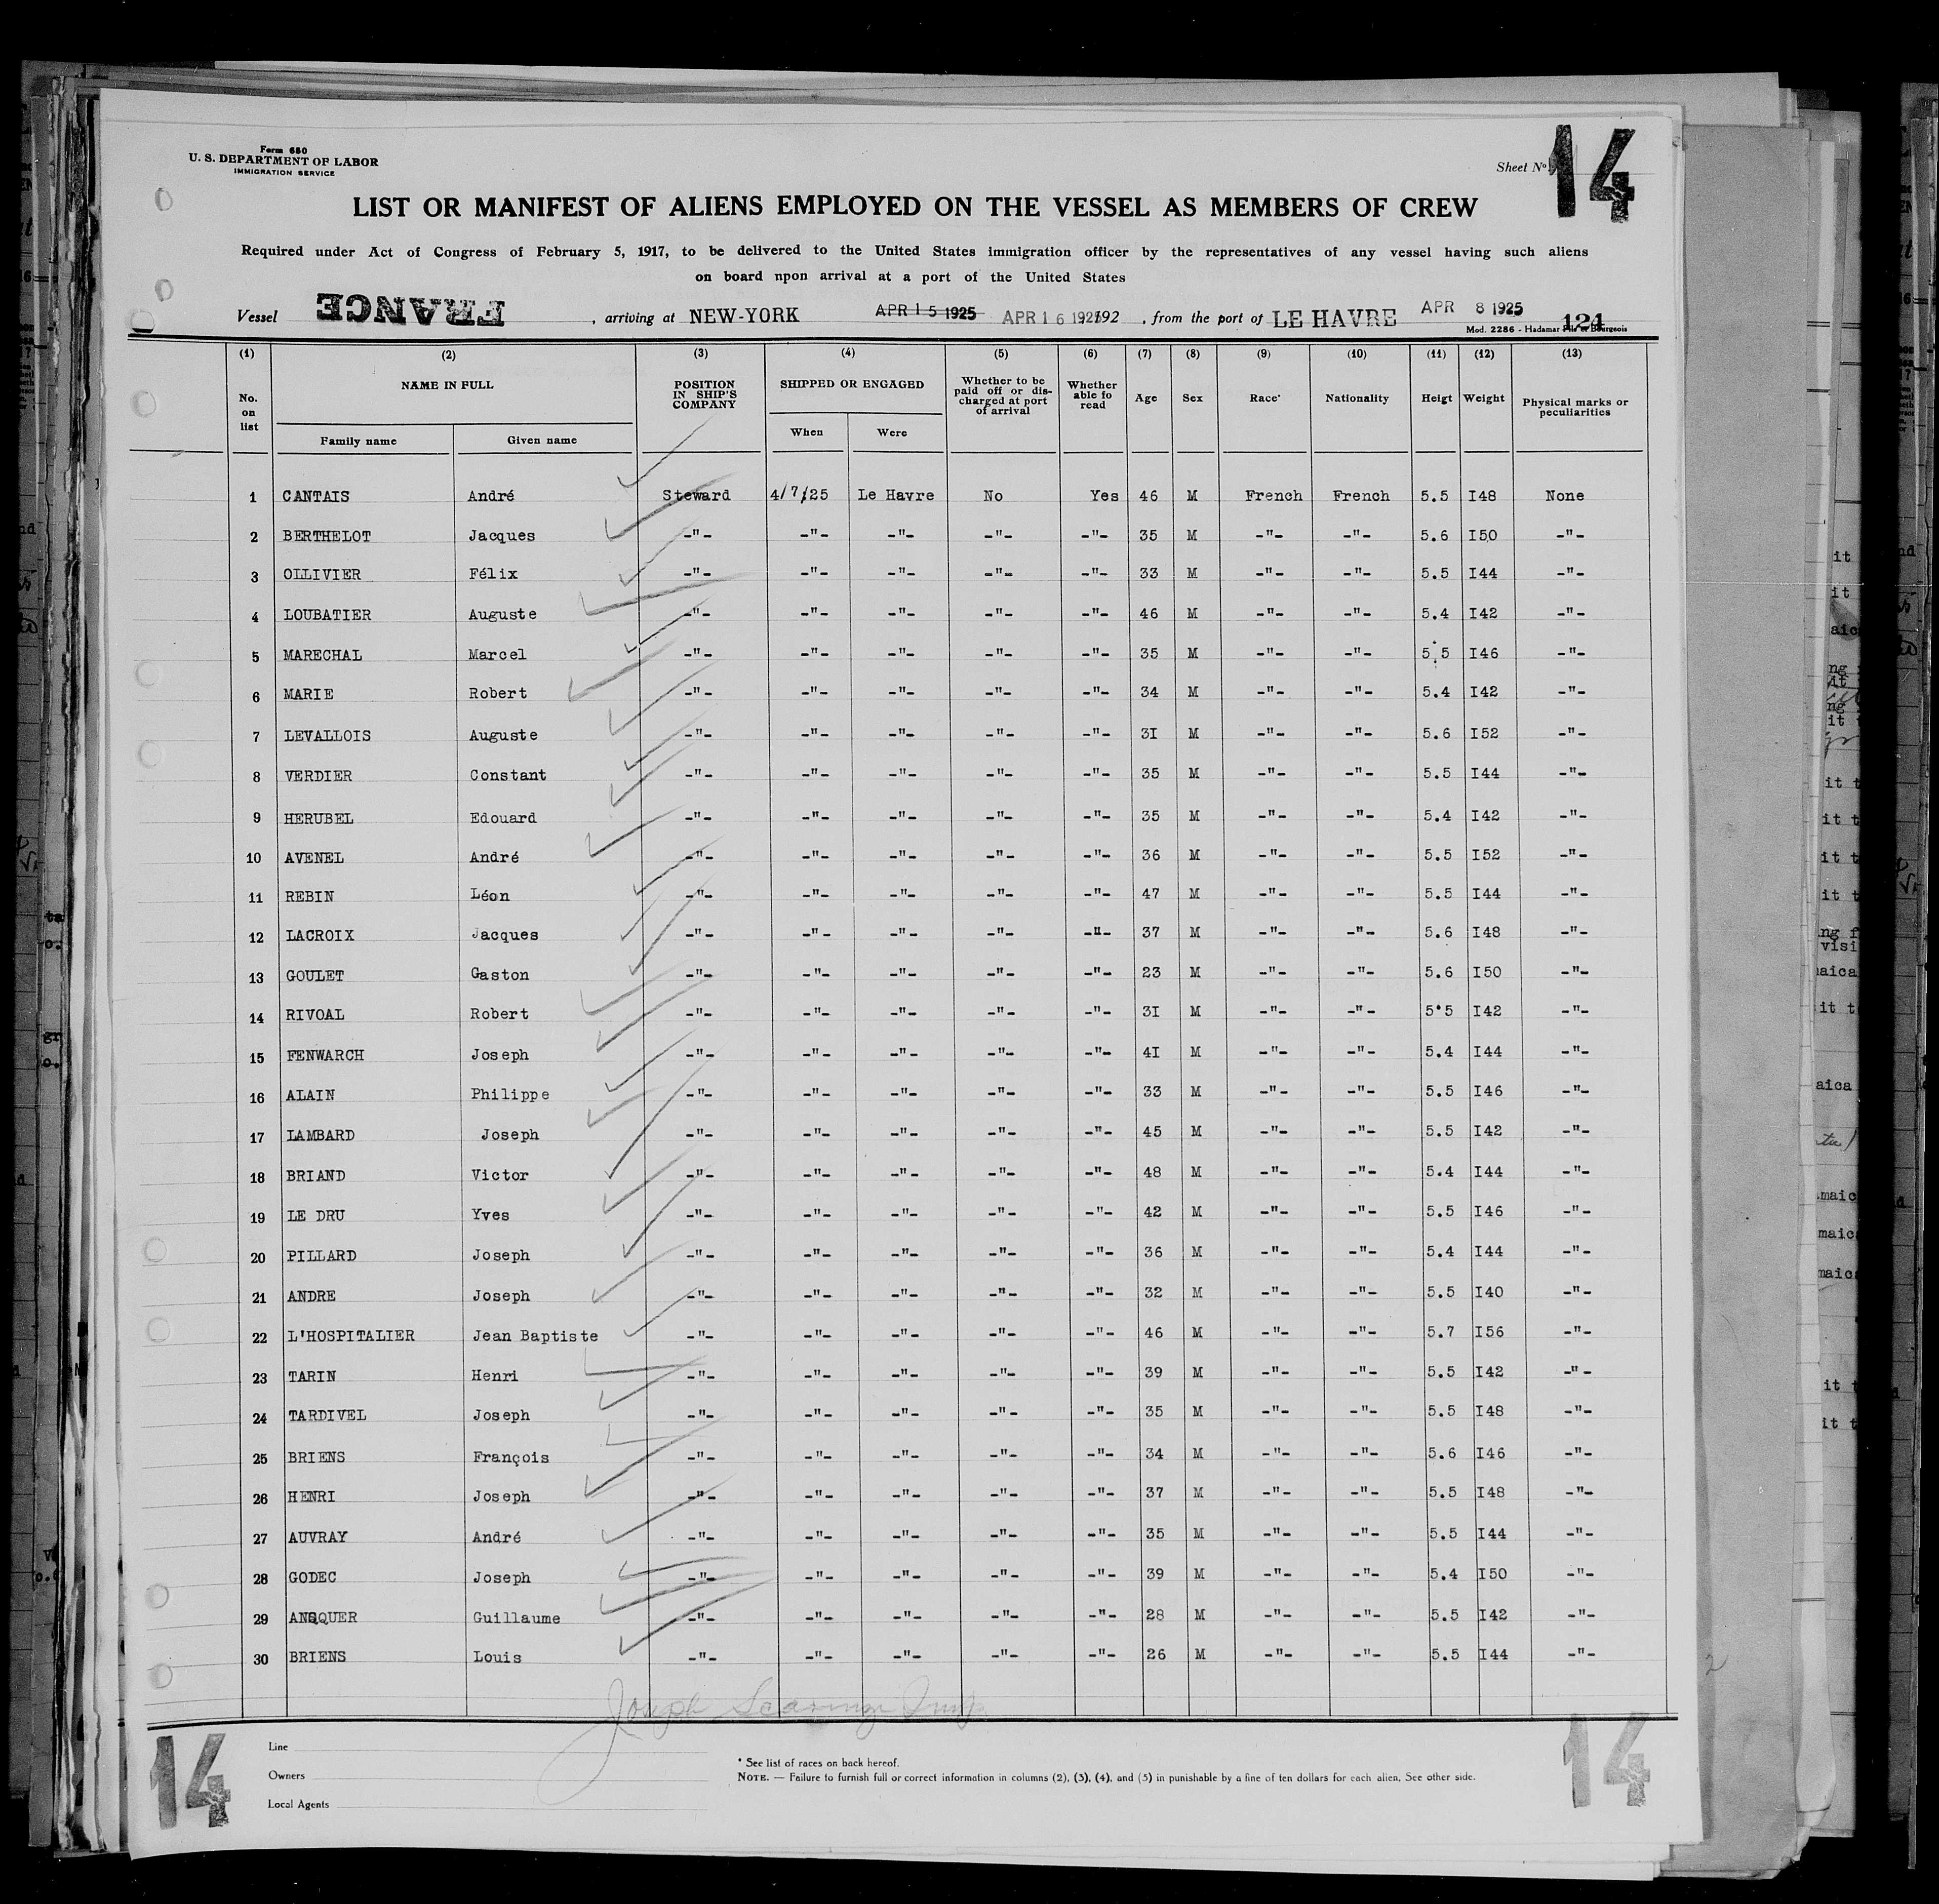 Form 680
U. S. DEPARTMENT OF LABOR
IMMIGRATION SERVICE
Sheet No 14
LIST OR MANIFEST OF ALIENS EMPLOYED ON THE VESSEL AS MEMBERS OF CREW
Required under Act of Congress of February 5, 1917, to be delivered to the United States immigration officer by the representatives of any vessel having such aliens
on board npon arrival at a port of the United States
Vessel FRANCE , arriving at NEW-YORK APR 15 1925 APR 16 1925 192 , from the port of LE HAVRE APR 8 1925
Mod. 2286 - Hadamar Fils et Bourgeois 124
(1) (2) (3) (4) (5) (6) (7) (8) (9) (10) (11) (12) (13)
No. on list NAME IN FULL Family name Given name POSITION IN SHIP'S COMPANY SHIPPED OR ENGAGED When Were Whether to be paid off or discharged at port of arrival Whether able fo read Age Sex Race* Nationality Heigt Weight Physical marks or peculiarities
1 CANTAIS André Steward 4/7/25 Le Havre No Yes 46 M French French 5.5 I48 None
2 BERTHELOT Jacques -"- -"- -"- -"- -"- 35 M -"- -"- 5.6 I50 -"-
3 OLLIVIER Félix -"- -"- -"- -"- -"- 33 M -"- -"- 5.5 I44 -"-
4 LOUBATIER Auguste -"- -"- -"- -"- -"- 46 M -"- -"- 5.4 I42 -"-
5 MARECHAL Marcel -"- -"- -"- -"- -"- 35 M -"- -"- 5.5 I46 -"-
6 MARIE Robert -"- -"- -"- -"- -"- 34 M -"- -"- 5.4 I42 -"-
7 LEVALLOIS Auguste -"- -"- -"- -"- -"- 3I M -"- -"- 5.6 I52 -"-
8 VERDIER Constant -"- -"- -"- -"- -"- 35 M -"- -"- 5.5 I44 -"-
9 HERUBEL Edouard -"- -"- -"- -"- -"- 35 M -"- -"- 5.4 I42 -"-
10 AVENEL André -"- -"- -"- -"- -"- 36 M -"- -"- 5.5 I52 -"-
11 REBIN Léon -"- -"- -"- -"- -"- 47 M -"- -"- 5.5 I44 -"-
12 LACROIX Jacques -"- -"- -"- -"- -"- 37 M -"- -"- 5.6 I48 -"-
13 GOULET Gaston -"- -"- -"- -"- -"- 23 M -"- -"- 5.6 I50 -"-
14 RIVOAL Robert -"- -"- -"- -"- -"- 3I M -"- -"- 5.5 I42 -"-
15 FENWARCH Joseph -"- -"- -"- -"- -"- 4I M -"- -"- 5.4 I44 -"-
16 ALAIN Philippe -"- -"- -"- -"- -"- 33 M -"- -"- 5.5 I46 -"-
17 LAMBARD Joseph -"- -"- -"- -"- -"- 45 M -"- -"- 5.5 I42 -"-
18 BRIAND Victor -"- -"- -"- -"- -"- 48 M -"- -"- 5.4 I44 -"-
19 LE DRU Yves -"- -"- -"- -"- -"- 42 M -"- -"- 5.5 I46 -"-
20 PILLARD Joseph -"- -"- -"- -"- -"- 36 M -"- -"- 5.4 I44 -"-
21 ANDRE Joseph -"- -"- -"- -"- -"- 32 M -"- -"- 5.5 I40 -"-
22 L'HOSPITALIER Jean Baptiste -"- -"- -"- -"- -"- 46 M -"- -"- 5.7 I56 -"-
23 TARIN Henri -"- -"- -"- -"- -"- 39 M -"- -"- 5.5 I42 -"-
24 TARDIVEL Joseph -"- -"- -"- -"- -"- 35 M -"- -"- 5.5 I48 -"-
25 BRIENS François -"- -"- -"- -"- -"- 34 M -"- -"- 5.6 I46 -"-
26 HENRI Joseph -"- -"- -"- -"- -"- 37 M -"- -"- 5.5 I48 -"-
27 AUVRAY André -"- -"- -"- -"- -"- 35 M -"- -"- 5.5 I44 -"-
28 GODEC Joseph -"- -"- -"- -"- -"- 39 M -"- -"- 5.4 I50 -"-
29 ANSQUER Guillaume -"- -"- -"- -"- -"- 28 M -"- -"- 5.5 I42 -"-
30 BRIENS Louis -"- -"- -"- -"- -"- 26 M -"- -"- 5.5 I44 -"-
Joseph
14 14
Line
Owners
Local Agents
* See list of races on back hereof.
NOTE. — Failure to furnish full or correct information in columns (2), (3), (4), and (5) in punishable by a fine of ten dollars for each alien, See other side.